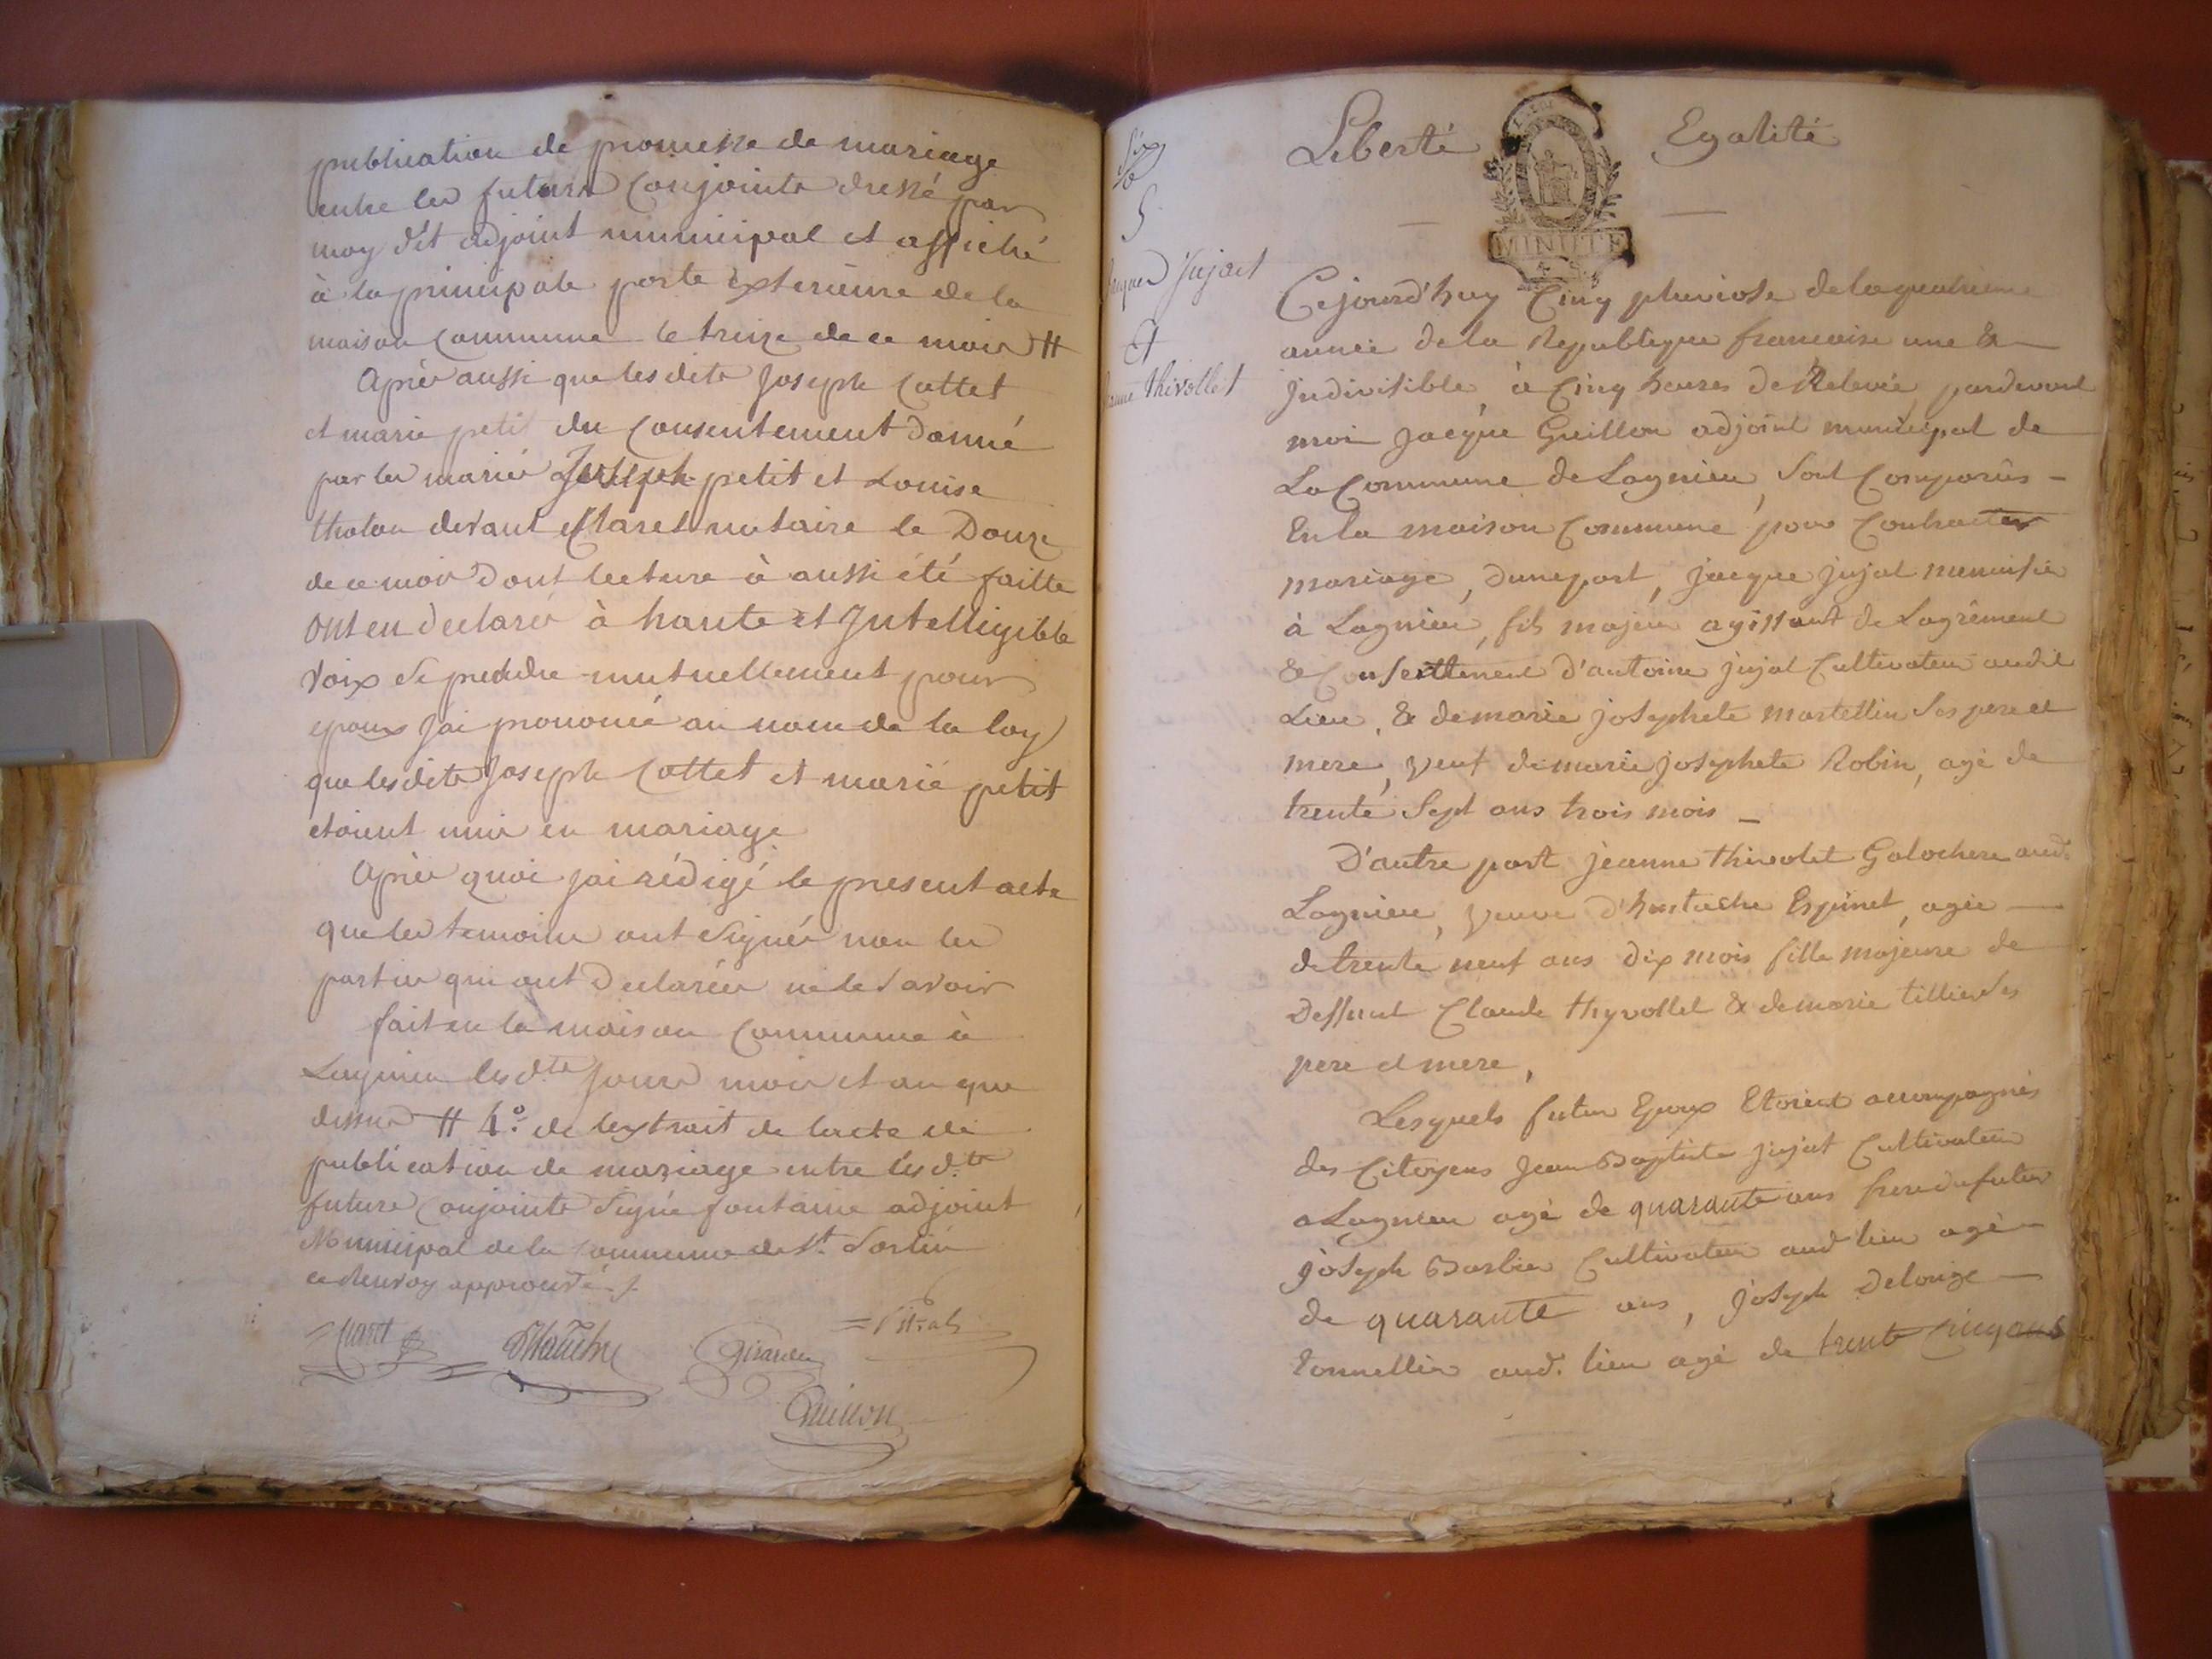 publication de promesse de mariage
entre les futurs conjoints dressé par
moy d't adjoint municipal et affiché
à la principale porte exterieure de la
maison commune le treize de ce mois #
Après aussi que lesdits Joseph Cottet
et marie petit du consentement donné
par les mariés Joseph petit et Louise
tholon devant Claret notaire le Douze
de ce mois dont lecture à aussi été faitte
ont en declaré à haute et Intelligible
voix se prendre mutuellement pour
epoux j'ai prononcé au nom de la loy
que lesdits Joseph Cottet et marie petit
etoient unis en mariage
Après quoi j'ai rédigé le present acte
que les temoins ont signés non les
parties qui ont declarées ne le savoir
fait en la maison commune à
Lagnieu les dts jours mois et an que
dessus # 4.° de lextrait de lacte de
publication de mariage entre les d.ts
futurs conjoints signé fontaine adjoint
Municipal de la commune de St. Sorlin
ce renvoy approuvé ./.
Girardin
Guillon
Liberté Egalité
MINUTE
Six
Jacques Jujat
Et
Jeanne thivollet
Cejourd'huy Cinq pluviose de la quatrieme
année de la Republique francaise une &
Indivisible, à Cinq heures de Relevée pardevant
moi Jacque Guillon adjoint municipal de
La Commune de Lagnieu, sont Comparûs -
En la maison Commune pour Contracter
mariage, dune part, jacque jujat menuisier
à Lagnieu, fils majeur agissant de Lagrément
& Consentement d'antoine jujat Cultivateur audit
Lieu, & de marie josephete martellin ses pere et
mere, veuf de marie josephete Robin, agé de
trente sept ans trois mois _
D'autre part jeanne thivolet Galochere aud.
Lagnieu, veuve d'hustache Espinet, agée
de trente neuf ans dix mois fille majeure de
Deffunt Claude thyvollet & de marie tillier ses
pere et mere,
Lesquels futur Epoux Etoient accompagnés
des Citoyens Jean Baptiste jujat Cultivateur
a Lagnieu agé de quarante ans frere du futur
joseph Barbier Cultivateur aud lieu agé
de quarante ans, joseph Delorize
tonnellier aud. lieu agé de trente cinq ans